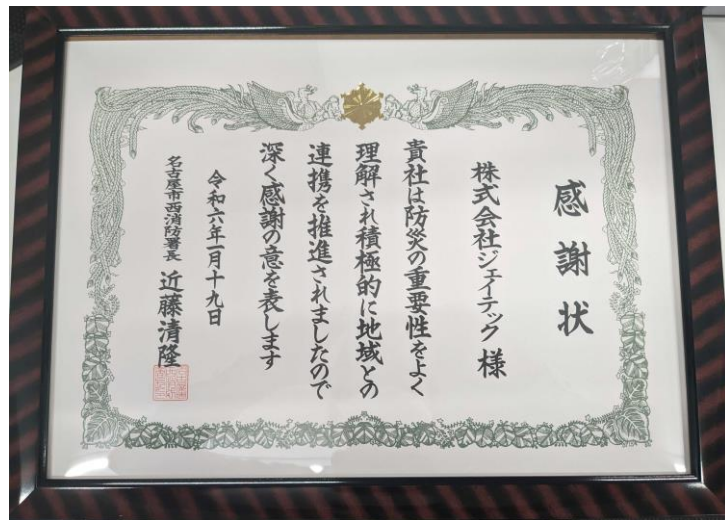 感謝状
株式会社ジェイテック 様
貴社は防災の重要性をよく
理解され積極的に地域との
連携を推進されましたので
深く感謝の意を表します
令和六年一月十九日
名古屋市西消防署長 近藤清隆